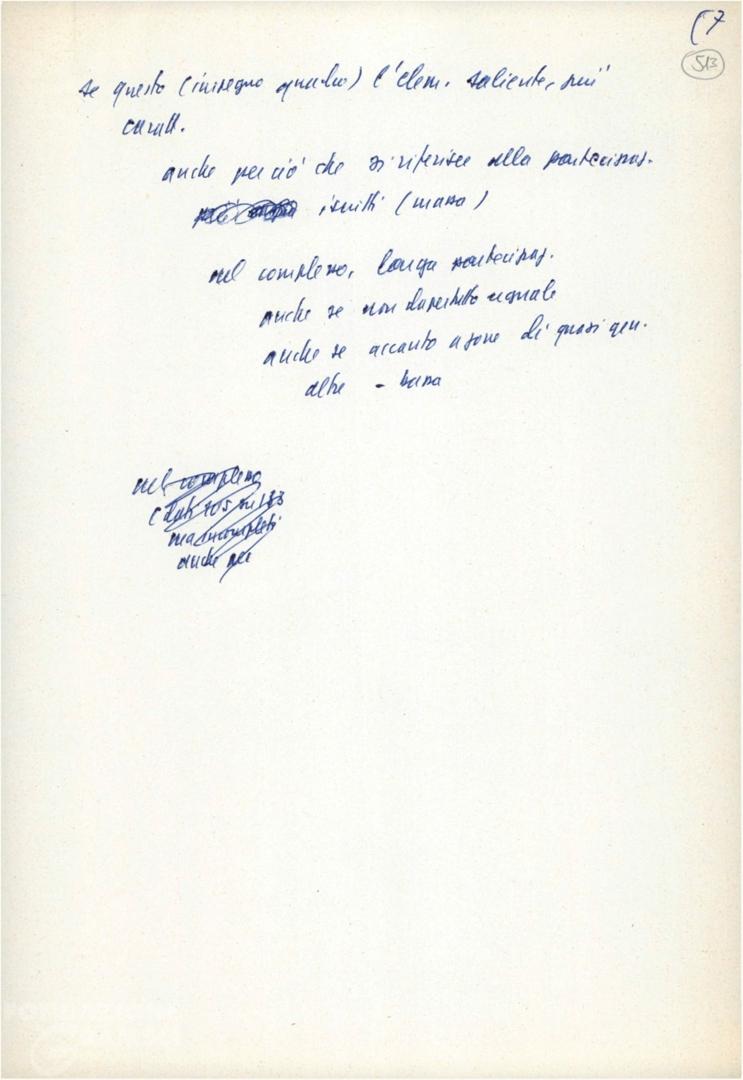 (7
513
se questo (impegno quadro) l'elem. saliente, più
caratt.
anche per ciò che si riferisce alla partecipaz.
iscritti (massa)
nel complesso, larga partecipaz.
anche se non dappertutto eguale
anche se accanto a zone di quasi gen.
altre - bassa
nel complesso
(dati 705 su 133
ma incompleti
anche per